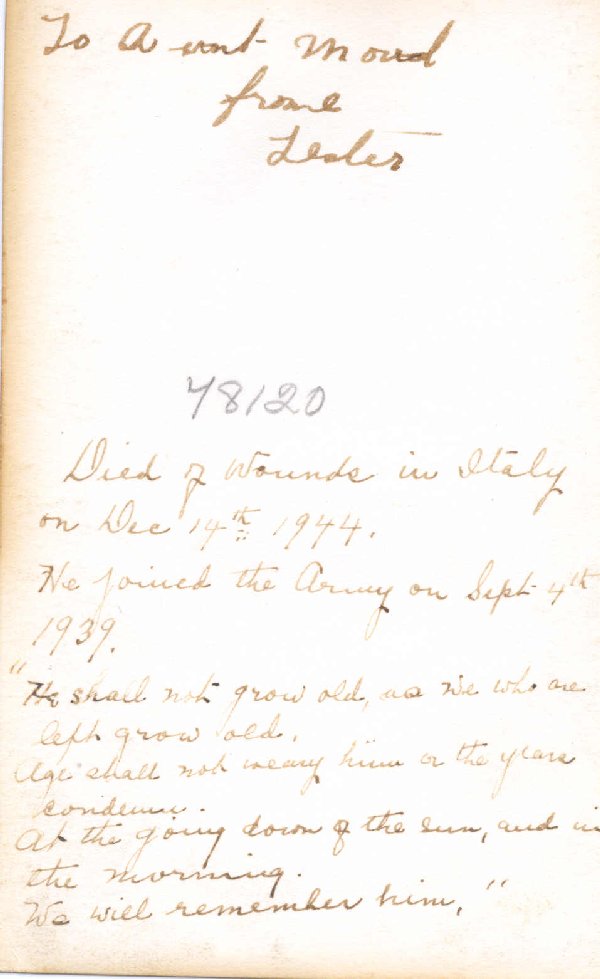 To Aunt Moud
frome
Lester
78120
Died of wounds in Italy
on Dec 14th 1944.
He joined the Army on Sept 4th
1939.
"He shall not grow old, as we who are
left grow old.
Age shall not weary him or the years
condemn.
At the going down of the sun, and in
the morning.
We will remember him."